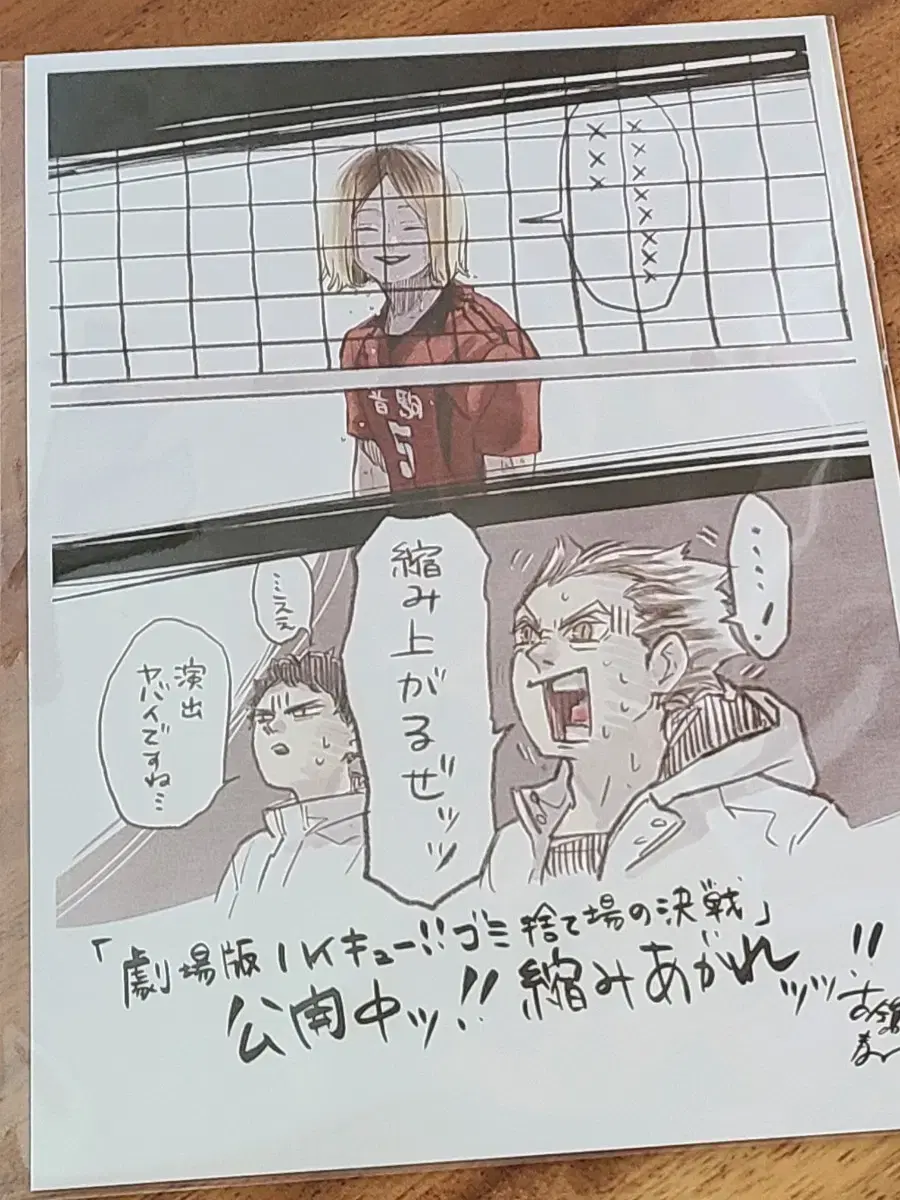 ××××××××
×××
音駒
5
・・・・・!
縮み上がるぜッッ
…ええ
演出
ヤバイですね…
「劇場版ハイキュー!!ゴミ捨て場の決戦」
公開中ッ!!縮みあがれッッ!!